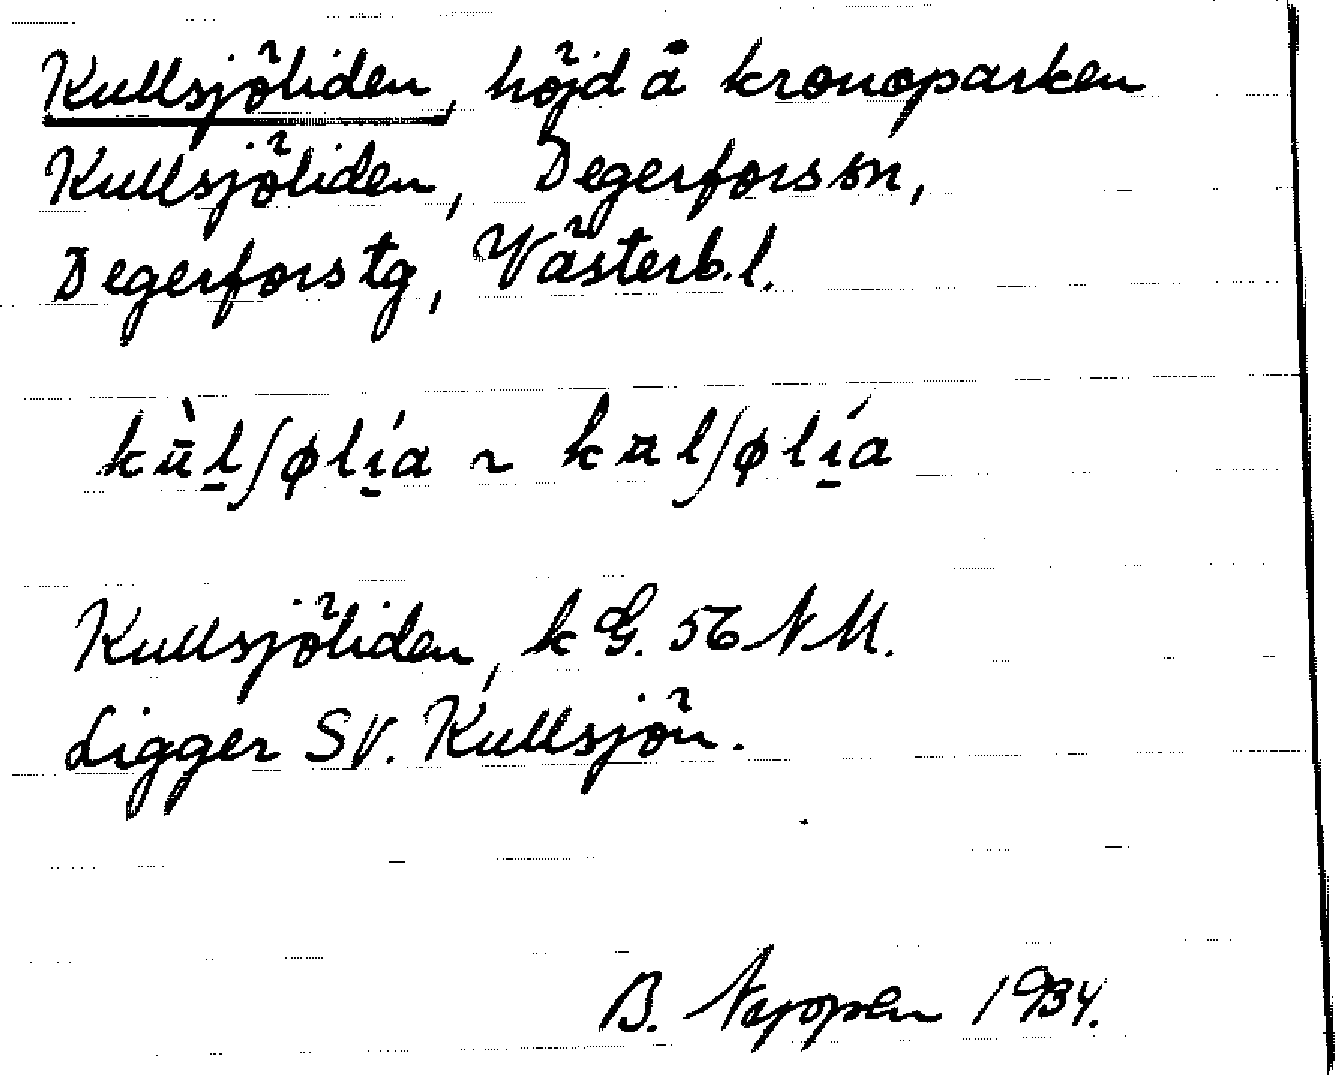 Kullsjöliden, höjd å kronoparken
Kullsjöliden, Degerfors sn,
Degerfors tg, Västerb. l.
kʉ̀l̠ʃølí̠a ~ kʉlʃølí̠a
Kullsjöliden, k G. 56 N M.
Ligger SV. Kullsjön.
B. 1934.